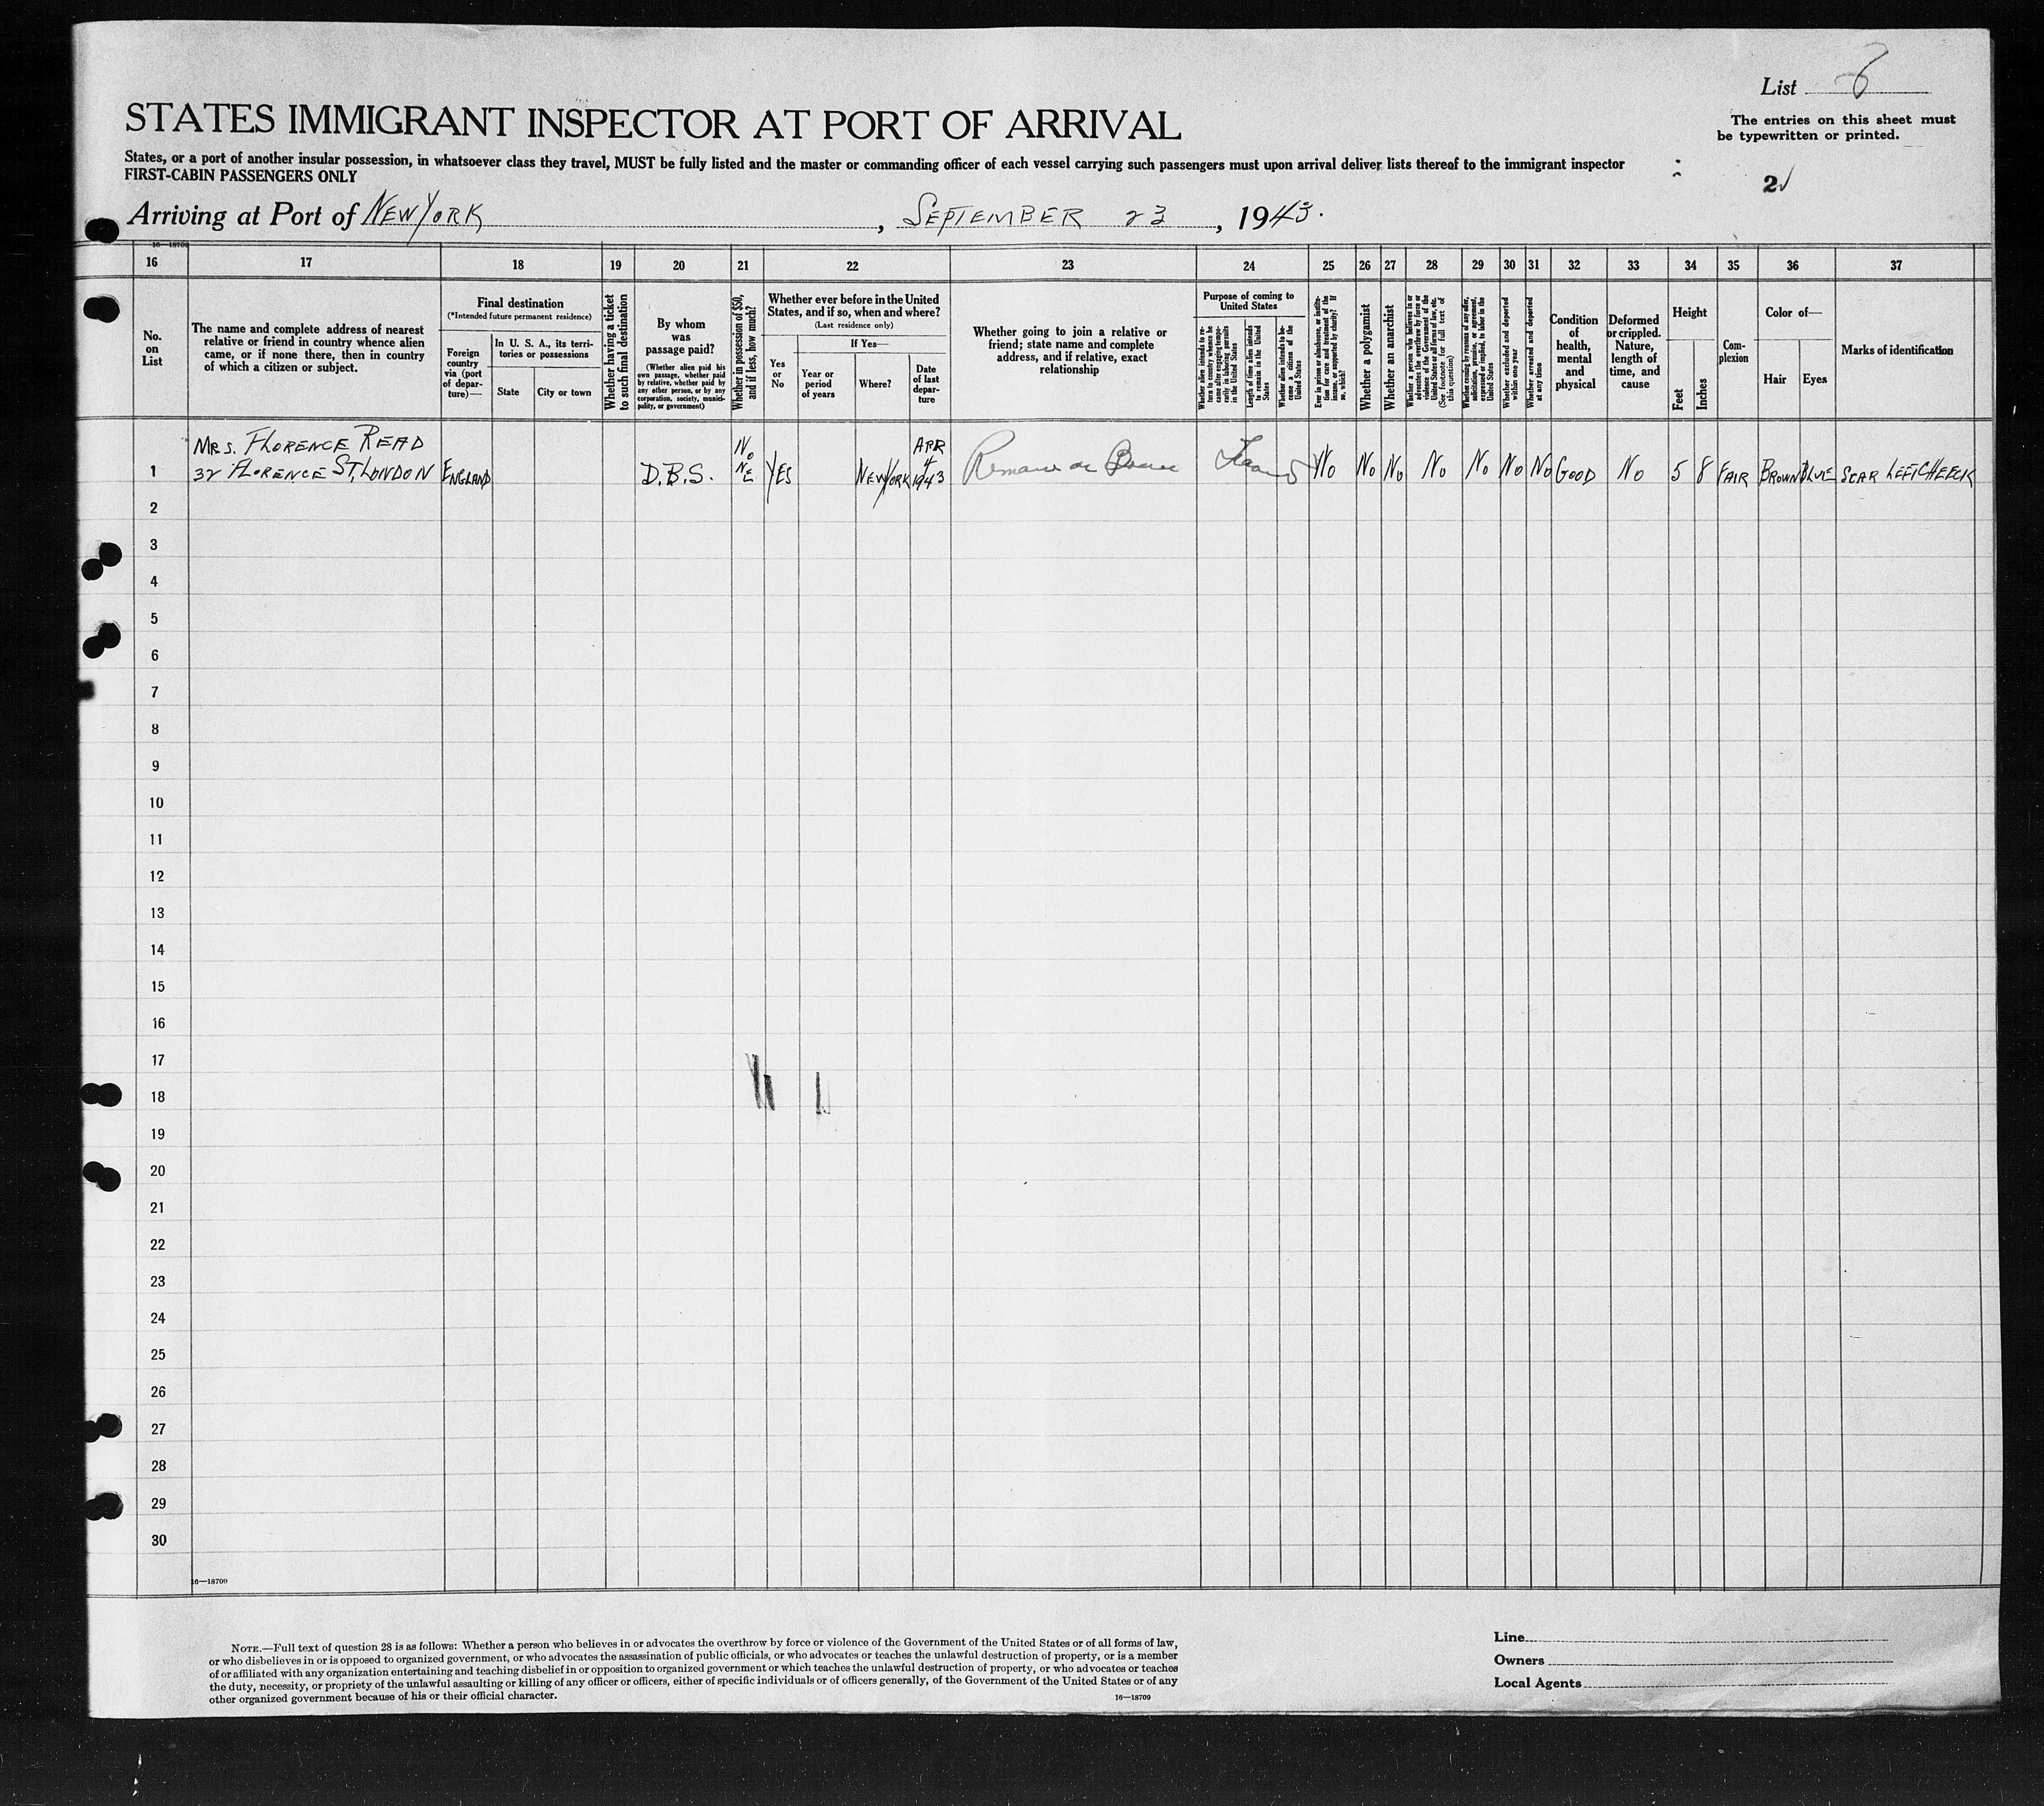 List 8
The entries on this sheet must
be typewritten or printed.
STATES IMMIGRANT INSPECTOR AT PORT OF ARRIVAL
States, or a port of another insular possession, in whatsoever class they travel, MUST be fully listed and the master or commanding officer of each vessel carrying such passengers must upon arrival deliver lists thereof to the immigrant inspector
FIRST-CABIN PASSENGERS ONLY
2
Arriving at Port of NEW YORK, SEPTEMBER 23, 1943.
16—18709
16 17 18 19 20 21 22 23 24 25 26 27 28 29 30 31 32 33 34 35 36 37
No.
on
List
The name and complete address of nearest
relative or friend in country whence alien
came, or if none there, then in country
of which a citizen or subject.
Final destination
(*Intended future permanent residence)
Foreign
country
via (port
of depar-
ture)—
In U. S. A., its terri-
tories or possessions
State
City or town
Whether having a ticket
to such final destination
By whom
was
passage paid?
(Whether alien paid his
own passage, whether paid
by relative, whether paid by
any other person, or by any
corporation, society, munici-
pality, or government)
Whether in possession of $50,
and if less, how much?
Whether ever before in the United
States, and if so, when and where?
(Last residence only)
Yes
or
No
If Yes—
Year or
period
of years
Where?
Date
of last
depar-
ture
Whether going to join a relative or
friend; state name and complete
address, and if relative, exact
relationship
Purpose of coming to
United States
Whether alien intends to re-
turn to country whence he
came after engaging tempo-
rarily in laboring pursuits
in the United States
Length of time alien intends
to remain in the United
States
Whether alien intends to be-
come a citizen of the
United States
Ever in prison or almshouse, or institu-
tion for care and treatment of the
insane, or supported by charity? If
so, which?
Whether a polygamist
Whether an anarchist
Whether a person who believes in or
advocates the overthrow by force or
violence of the Government of the
United States or all forms of law, etc.
(See footnote for full text of
this question)
Whether coming by reasons of any offer,
solicitation, promise, or agreement,
expressed or implied, to labor in the
United States
Whether excluded and deported
within one year
Whether arrested and deported
at any time
Condition
of
health,
mental
and
physical
Deformed
or crippled.
Nature,
length of
time, and
cause
Height
Feet
Inches
Com-
plexion
Color of—
Hair
Eyes
Marks of identification
MRS. FLORENCE READ
1 32 FLORENCE ST, LONDON ENGLAND D.B.S. NONE YES NEW YORK APR 4 1943 NO NO NO NO NO NO NO GOOD NO 5 8 FAIR BROWN BLUE SCAR LEFT CHEECK
2
3
4
5
6
7
8
9
10
11
12
13
14
15
16
17
18
19
20
21
22
23
24
25
26
27
28
29
30
16—18709
NOTE.—Full text of question 28 is as follows: Whether a person who believes in or advocates the overthrow by force or violence of the Government of the United States or of all forms of law,
or who disbelieves in or is opposed to organized government, or who advocates the assassination of public officials, or who advocates or teaches the unlawful destruction of property, or is a member
of or affiliated with any organization entertaining and teaching disbelief in or opposition to organized government or which teaches the unlawful destruction of property, or who advocates or teaches
the duty, necessity, or propriety of the unlawful assaulting or killing of any officer or officers, either of specific individuals or of officers generally, of the Government of the United States or of any
other organized government because of his or their official character.
16—18709
Line
Owners
Local Agents